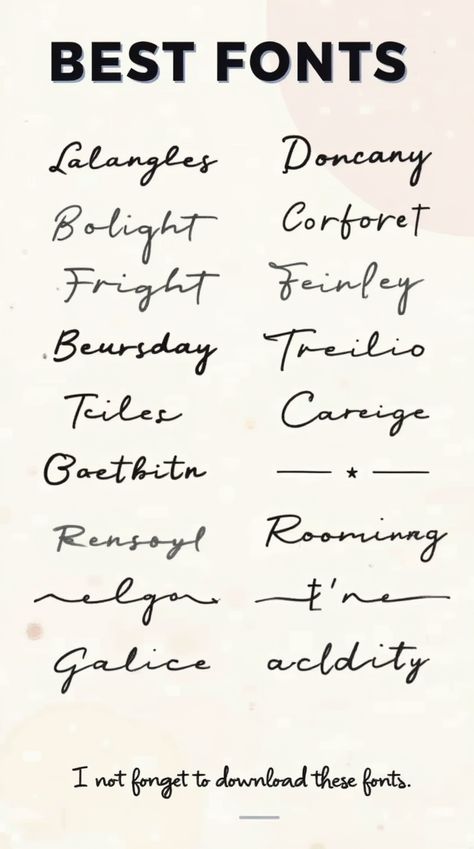 BEST FONTS
Lalangles Doncany
Bolight Corforet
Fright Feinley
Beursday Treilio
Tciles Careige
Baetbitn
Rensoyl Roominng
elgon t'ne
Galice acldity
I not fonget to download these fonts.